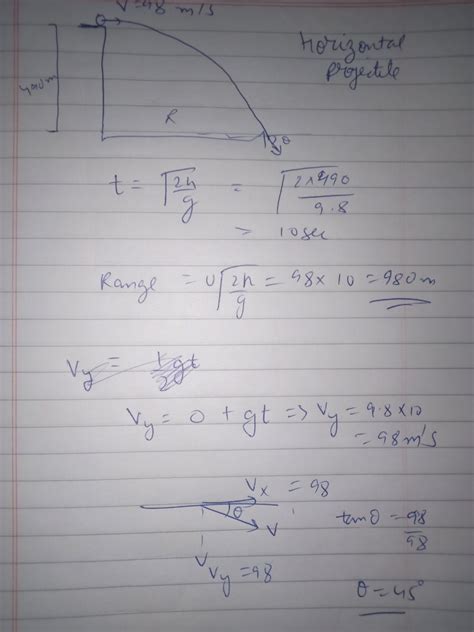 V=98 m/s
Horizontal
Projectile
490m
R
θ
t = √2h/g = √2×490/9.8
= 10 sec
Range = U√2h/g = 98 × 10 = 980 m
Vy = 1/2 gt
Vy = 0 + gt => Vy = 9.8 × 10
= 98 m/s
Vx = 98
θ
V
Vy = 98
tanθ = 98/98
θ = 45°